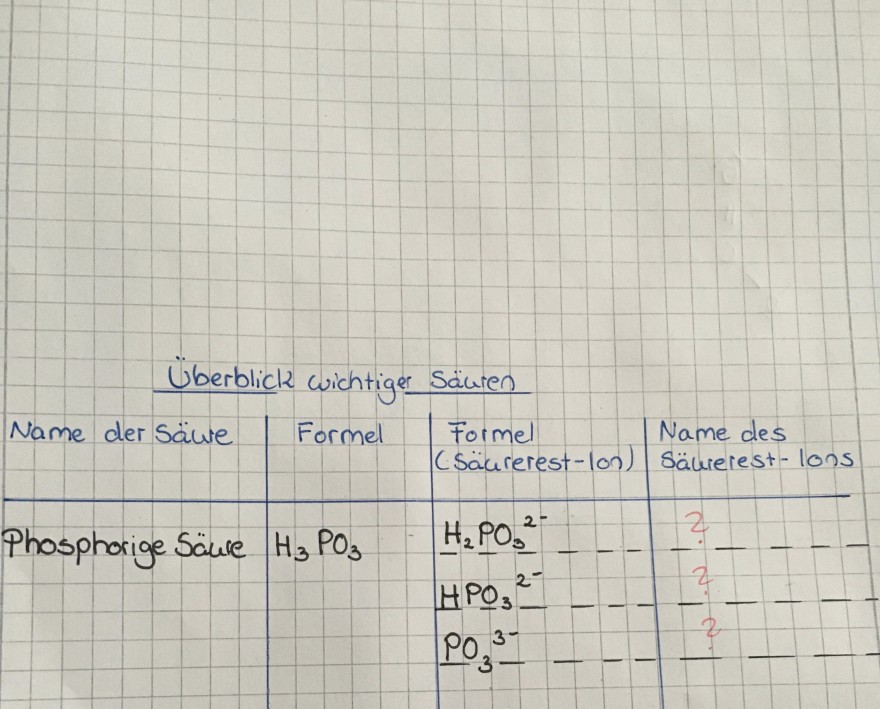 Überblick wichtiger Säuren
Name der Säure | Formel | Formel (Säurerest-Ion) | Name des Säurerest-Ions
Phosphorige Säure | H₃PO₃ | H₂PO₃²⁻ | ?
HPO₃²⁻ | ?
PO₃³⁻ | ?